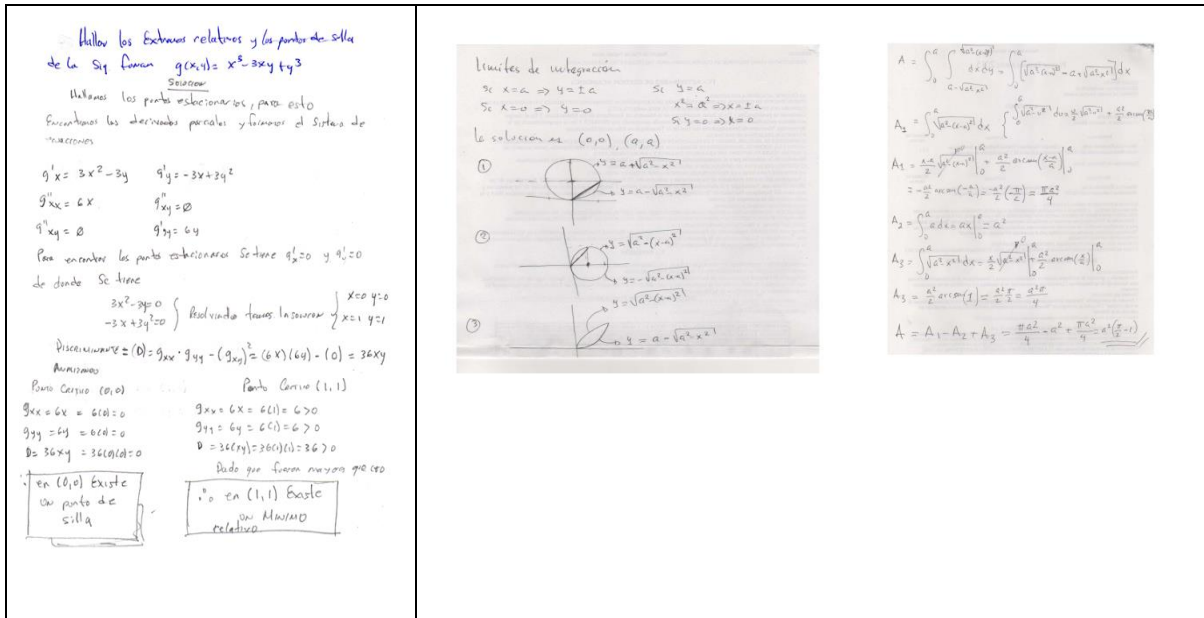 Hallar los Extremos relativos y los puntos de silla
de la Sig forma g(x,y)= x³-3xy+y³
Solucion
Hallamos los puntos estacionarios, para esto
Encontramos las derivadas parciales y formamos el Sistema de
g'x = 3x²-3y g'y = -3x+3y²
g''xx = 6x g''xy = Ø
g''xy = Ø g''yy = 6y
Para encontrar los puntos estacionarios Se tiene g'x=0 y g'y=0
de donde Se tiene
3x²-3y=0
-3x+3y²=0 } Resolviendo tenemos la solucion { x=0 y=0
x=1 y=1
Discriminante = (D) = gxx · gyy - (gxy)² = (6x)(6y) - (0) = 36xy
Punto Critico (0,0) Punto Critico (1,1)
gxx = 6x = 6(0)=0 gxx = 6x = 6(1) = 6 >0
gyy = 6y = 6(0)=0 gyy = 6y = 6(1) = 6 >0
D= 36xy = 36(0)(0)=0 D = 36(xy)=36(1)(1)=36>0
Dado que fueron mayores que cero
∴ en (0,0) Existe
un punto de
silla
∴ en (1,1) Existe
un MINIMO
relativo
Limites de integración
Si x=a => y=±a Si y=a
Si x=0 => y=0 x²=a² => x=±a
Si y=0 => x=0
la solucion es (0,0), (a,a)
①
y=a+√a²-x²
y=a-√a²-x²
②
y=√a²-(x-a)²
y=-√a²-(x-a)²
③
y=√a²-(x-a)²
y=a-√a²-x²
A = ∫₀ᵃ ∫ dxdy = ∫₀ᵃ [√a²-(x-a)² - a+√a²-x²]dx
a-√a²-x²
A₁ = ∫₀ᵃ √a²-(x-a)² dx
A₁ = x-a/2 √a²-(x-a)² |₀ᵃ + a²/2 arcsen(x-a/a)|₀ᵃ
= -a²/2 arcsen(-a/a) = -a²/2 (-π/2) = πa²/4
A₂ = ∫₀ᵃ a dx = ax|₀ᵃ = a²
A₃ = ∫₀ᵃ √a²-x² dx = x/2 √a²-x² |₀ᵃ + a²/2 arcsen(x/a)|₀ᵃ
A₃ = a²/2 arcsen(1) = a²/2 π/2 = a²π/4
A = A₁ - A₂ + A₃ = πa²/4 - a² + πa²/4 = a²(π/2 -1)